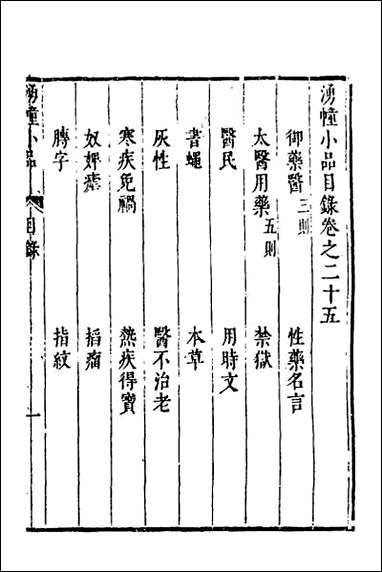 湧幢小品目錄卷之二十五
御藥醫三則 性藥名言
太醫用藥五則 禁獄
醫民 用時文
書蝇 本草
灰性 醫不治老
寒疾免禍 熱疾得寶
奴婢瘧 搯瘤
膊字 指紋
湧幢小品 目錄 一